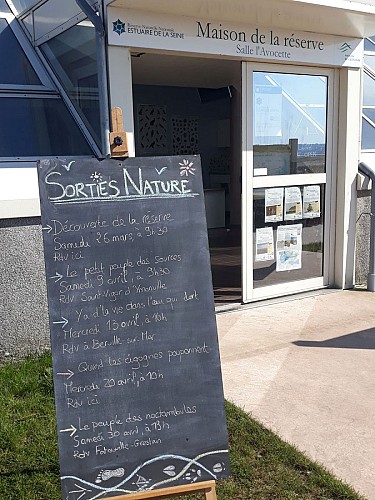 Réserve Naturelle Nationale
ESTUAIRE DE LA SEINE
Maison de la réserve
Salle l'Avocette
SORTIES NATURE
→ Découverte de la réserve
Samedi 26 mars, à 9h30
Rdv ici
→ Le petit peuple des sources
Samedi 9 avril, à 9h30
Rdv Saint-Vigor d'Ymonville
→ Y a d'la vie dans l'eau qui dort
Mercredi 13 avril, à 10h
Rdv à Berville sur Mer
→ Quand les cigognes pouponnent
Mercredi 20 avril, à 10h
Rdv ici
→ Le peuple des noctambules
Samedi 30 avril, à 19h
Rdv Fatouville-Grestain